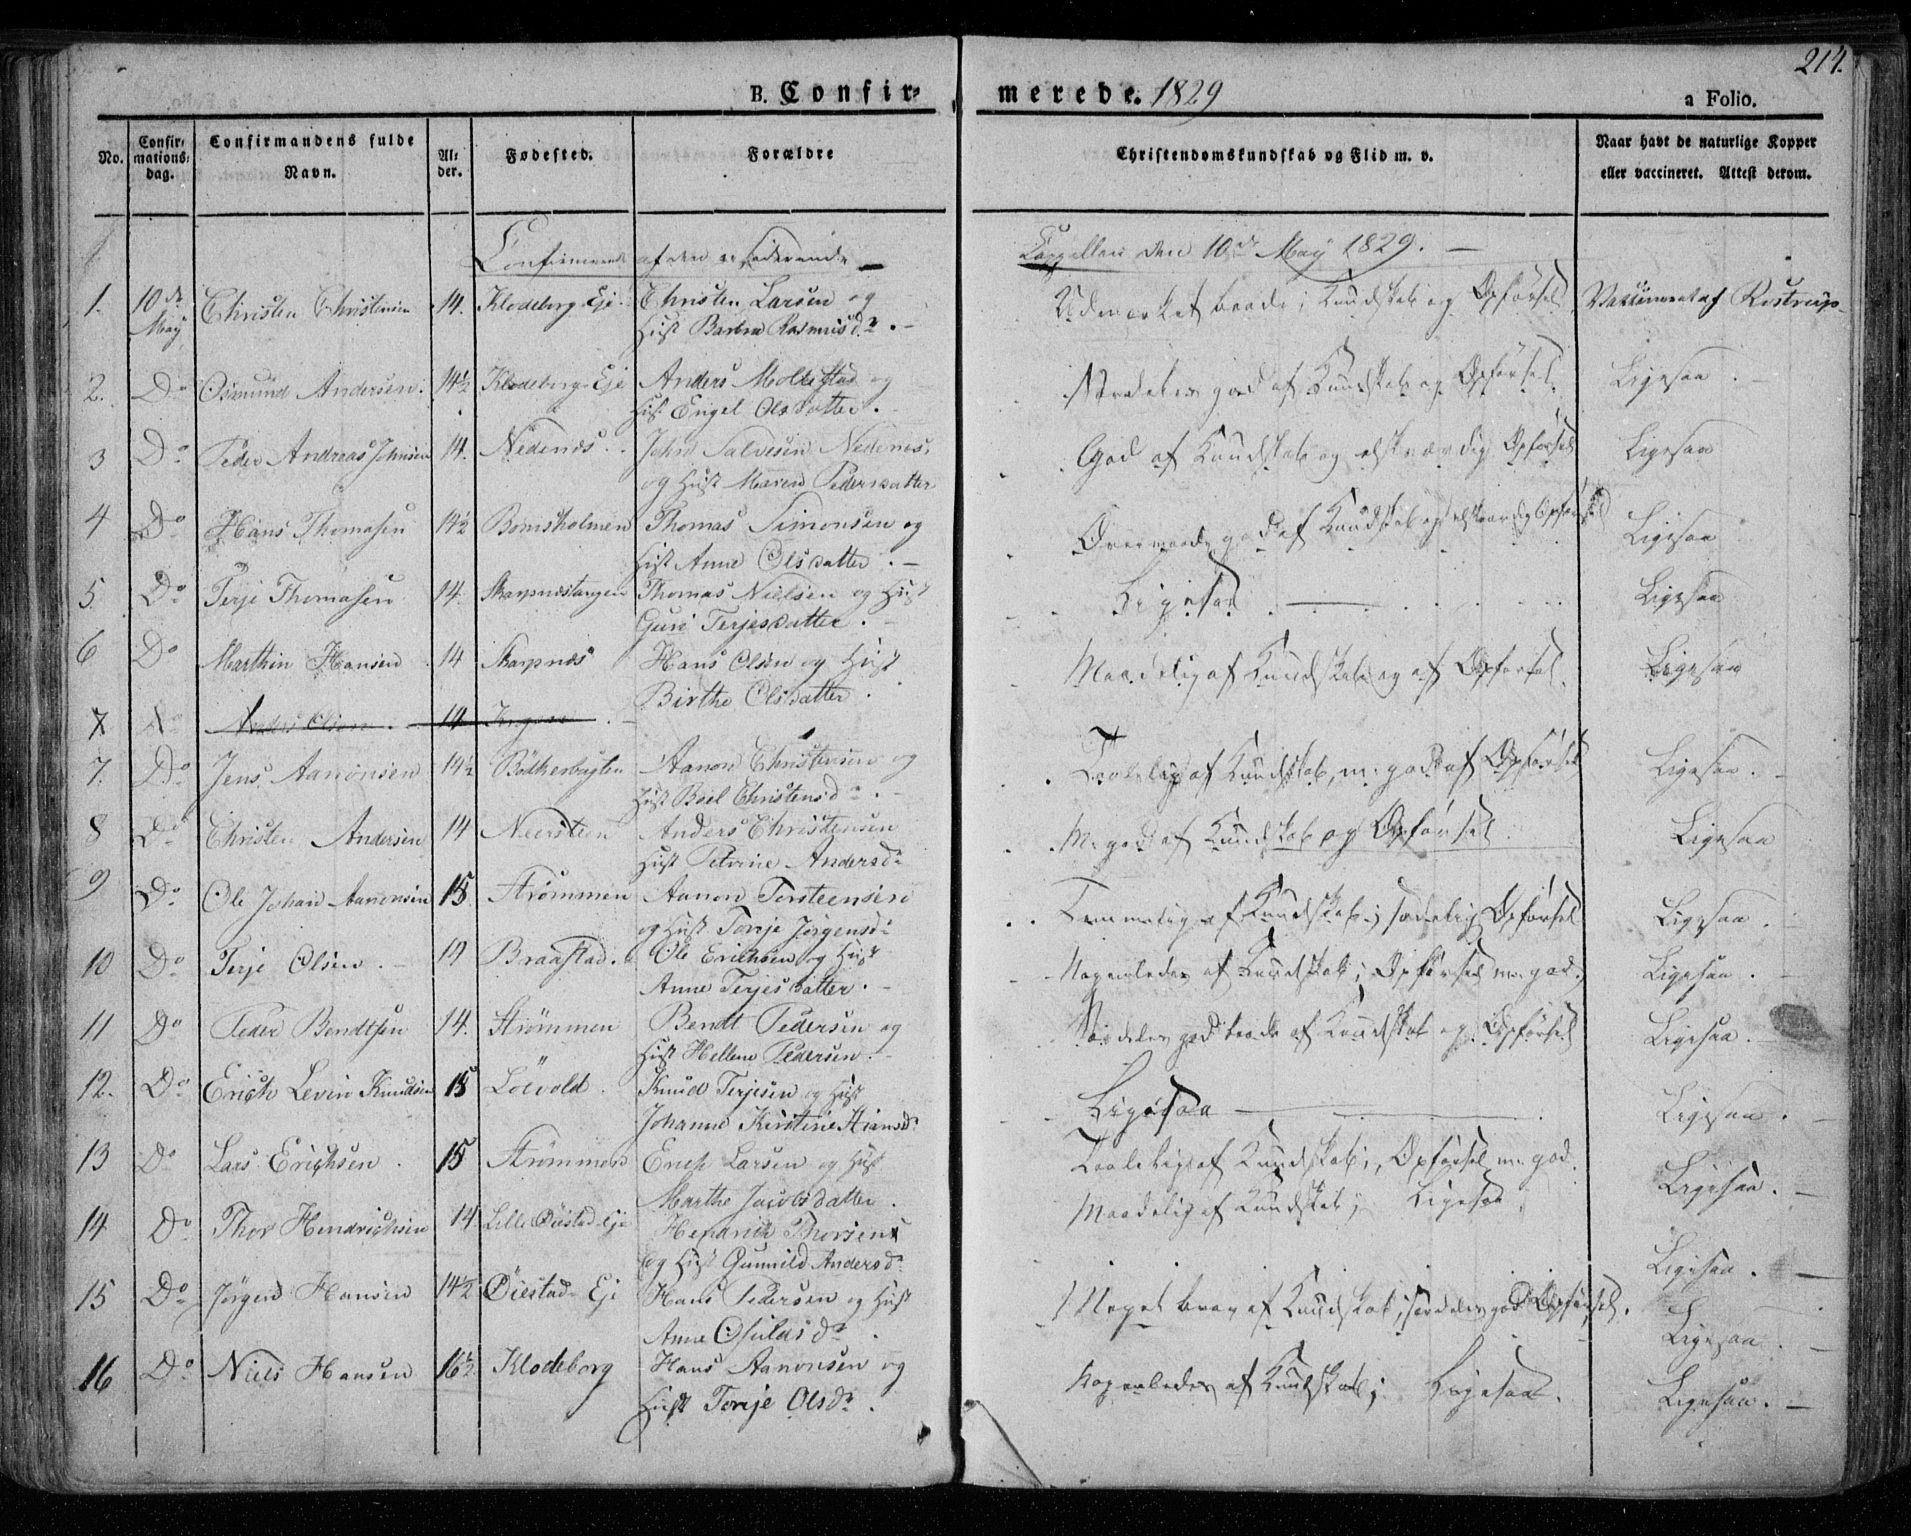 214.
B. Confir= merede. 1829
a Folio.
No. Confir= mations= dag. Confirmandens fulde Navn. Al= der. Fødested. Forældre Christendomskundskab og Flid m. v. Naar havt de naturlige Kopper eller vaccineret. Attest derom.
af den Cappellan den 10de May 1829. —
1. 10de May Christen Christensen 14. Klodeborg Eje Christen Larsen og Udmærket baade i Kundskab og Opførsel Vaksineret af Reistrup
Hust Barbra Rasmusdr. —
2. Do Osmund Andersen. 14½ Klodeborg Eje Anders Mollestad og Særdeles god af Kundskab og Opførsel. Ligesaa. —
Hust Engel Olsdatter.
3 Do Peder Andreas Johnsen 14. Nedenes. John Salvesen Nedenes. God af Kundskab og elskværdig Opførsel Ligesaa
og Hust Maren Pedersdatter
4 Do Hans Thomasen 14½ Bomsholmen Thomas Simonsen og Overmaade god af Kundskab og elskværdig Opførsel Ligesaa
Hust Anne Olsdatter. —
5. Do Terje Thomasen 14. Skarpnestangen Thomas Nielsen og Hust Ligesaa Ligesaa
Guri Terjesdatter. —
6 Do Marthin Hansen 14 Skarpnæs Hans Olsen og Hust Maadelig af Kundskab og af Opførsel. Ligesaa
Birthe Olsdatter.
7 Do Anders Olsen. 14
7. Do Jens Aanonsen 14½ Bødkerbugten Aanon Christensen og Taalelig af Kundskab, m. god af Opførsel Ligesaa. —
Hust Boel Christensdr. —
8 Do Christen Andersen 14 Neersteen Anders Christensen M. god af Kundskab og Opførsel Ligesaa
Hust Petrine Andersdr
9 Do Ole Johan Aanonsen 15. Strømmen Aanon Torsteensen Temmelig af Kundskab, sædelig Opførsel Ligesaa.
og Hust Torje Jørgensdr
10 Do Terje Olsen. 14 Braastad. Ole Erichsen og Hust Nogenledes af Kundskab; Opførsel m. god. Ligesaa. —
Anne Terjesdatter. —
11 Do Peder Bendtsen 14. Strømmen Bendt Pedersen og Særdeles god baade af Kundskab og Opførsel Ligesaa. —
Hust Hellene Pedersen. —
12. Do Erich Levin Knudsen 15 Løevold. Knud Terjesen og Hust Ligesaa — Ligesaa. —
Johanne Kirstine
13 Do Lars Erichsen. 15 Strømmen Erich Larsen og Hust Taalelig af Kundskab;, Opførsel m. god. Ligesaa. —
Marthe Jacobsdatter.
14 Do Thor Hendrichsen 14 Lille Øiestad Eje Hendrich Thorsen Maadelig af Kundskab; Ligesaa. Ligesaa. —
og Hust Gunnild Andersdr
15 Do Jørgen Hansen 14½ Øiestad Eje Hans Pedersen og Hust Meget brav af Kundskab; særdeles god Opførsel. Ligesaa. —
Anne Osuldsdr.
16 Do Niels Hansen 16½ Klodeborg Hans Aanonsen og Nogenledes af Kundskab; Ligesaa. Ligesaa. —
Hust Torje Olsdr.